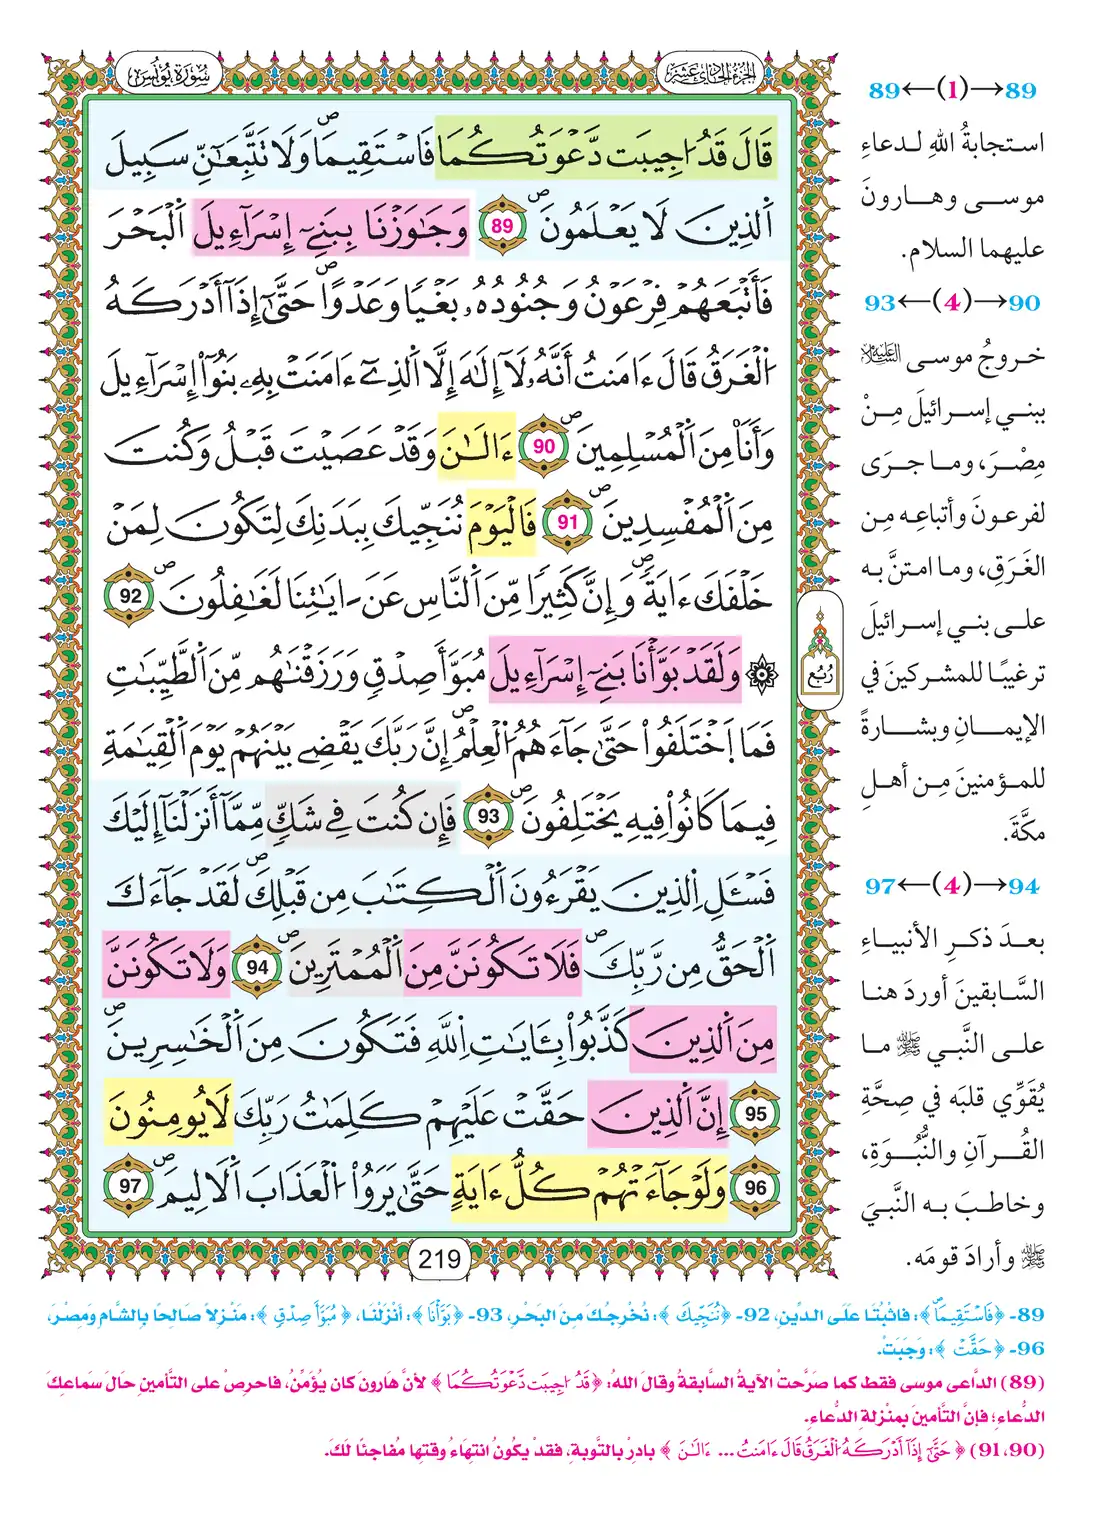 الجزء الحادي عشر
سورة يونس
قَالَ قَدُ اجِيبَت دَّعْوَتُكُمَا فَاسْتَقِيمَا وَلَا تَتَّبِعَآنِّ سَبِيلَ
اَلذِينَ لَا يَعْلَمُونَ 89 وَجَٰوَزْنَا بِبَنِےٓ إِسْرَآءِيلَ اَلْبَحْرَ
فَأَتْبَعَهُمْ فِرْعَوْنُ وَجُنُودُهُۥ بَغْيًا وَعَدْوًا حَتَّىٰٓ إِذَآ أَدْرَكَهُ
اُلْغَرَقُ قَالَ ءَامَنتُ أَنَّهُۥ لَآ إِلَٰهَ إِلَّا اَلذِےٓ ءَامَنَتْ بِهِۦ بَنُوٓاْ إِسْرَآءِيلَ
وَأَنَا۠ مِنَ اَلْمُسْلِمِينَ 90 ءَالَٰنَ وَقَدْ عَصَيْتَ قَبْلُ وَكُنتَ
مِنَ اَلْمُفْسِدِينَ 91 فَالْيَوْمَ نُنَجِّيكَ بِبَدَنِكَ لِتَكُونَ لِمَنْ
خَلْفَكَ ءَايَةً وَإِنَّ كَثِيرًا مِّنَ اَلنَّاسِ عَنَ ايَٰتِنَا لَغَٰفِلُونَ 92
۞ وَلَقَدْ بَوَّأْنَا بَنِےٓ إِسْرَآءِيلَ مُبَوَّأَ صِدْقٍ وَرَزَقْنَٰهُم مِّنَ اَلطَّيِّبَٰتِ
فَمَا اَخْتَلَفُواْ حَتَّىٰ جَآءَهُمُ اُلْعِلْمُ إِنَّ رَبَّكَ يَقْضِے بَيْنَهُمْ يَوْمَ اَلْقِيَٰمَةِ
فِيمَا كَانُواْ فِيهِ يَخْتَلِفُونَ 93 فَإِن كُنتَ فِے شَكٍّ مِّمَّآ أَنزَلْنَآ إِلَيْكَ
فَسْـَٔلِ اِلذِينَ يَقْرَءُونَ اَلْكِتَٰبَ مِن قَبْلِكَ لَقَدْ جَآءَكَ
اَلْحَقُّ مِن رَّبِّكَ فَلَا تَكُونَنَّ مِنَ اَلْمُمْتَرِينَ 94 وَلَا تَكُونَنَّ
مِنَ اَلذِينَ كَذَّبُواْ بِـَٔايَٰتِ اِللَّهِ فَتَكُونَ مِنَ اَلْخَٰسِرِينَ
95 إِنَّ اَلذِينَ حَقَّتْ عَلَيْهِمْ كَلِمَٰتُ رَبِّكَ لَا يُومِنُونَ
96 وَلَوْ جَآءَتْهُمْ كُلُّ ءَايَةٍ حَتَّىٰ يَرَوُاْ اُلْعَذَابَ اَلَالِيمَ 97
رُبُع
219
89←(1)→89
استجابةُ اللهِ لدعاءِ
موسى وهارونَ
عليهما السلام.
93←(4)→90
خروجُ موسى عليه السلام
ببني إسرائيلَ مِنْ
مِصْرَ، وما جرَى
لفرعونَ وأتباعِه مِن
الغَرَقِ، وما امتنَّ به
على بني إسرائيلَ
ترغيبًا للمشركينَ في
الإيمانِ وبشارةً
للمؤمنينَ مِن أهلِ
مكَّةَ.
97←(4)→94
بعدَ ذكرِ الأنبياءِ
السَّابقينَ أوردَ هنا
على النَّبي ﷺ ما
يُقَوِّي قلبَه في صِحَّةِ
القُرآنِ والنُّبُوَّةِ،
وخاطبَ به النَّبيَ
ﷺ وأرادَ قومَه.
89- ﴿فَاسْتَقِيمَا﴾: فاثبُتَا عَلَى الدِّينِ، 92- ﴿نُنَجِّيكَ﴾: نُخْرِجُكَ مِنَ البَحْرِ، 93- ﴿بَوَّأْنَا﴾: أَنْزَلْنَا، ﴿مُبَوَّأَ صِدْقٍ﴾: مَنْزِلًا صَالِحًا بِالشَّامِ وَمِصْرَ،
96- ﴿حَقَّتْ﴾: وَجَبَتْ.
(89) الدَّاعي موسى فقط كما صَرَّحتْ الآيةُ السَّابقةُ وقالَ اللهُ: ﴿قَدُ اجِيبَت دَّعْوَتُكُمَا﴾ لأنَّ هَارونَ كان يُؤَمِّنُ، فاحرِصْ على التَّأمينِ حَالَ سَماعِكَ
الدُّعاءِ؛ فإنَّ التَّأمينَ بمنْزلةِ الدُّعاءِ.
(90، 91) ﴿حَتَّىٰٓ إِذَآ أَدْرَكَهُ اُلْغَرَقُ قَالَ ءَامَنتُ ... ءَالَٰنَ﴾ بادِرْ بالتَّوبةِ، فقدْ يكُونُ انتهاءُ وقتِها مُفاجئًا لَكَ.